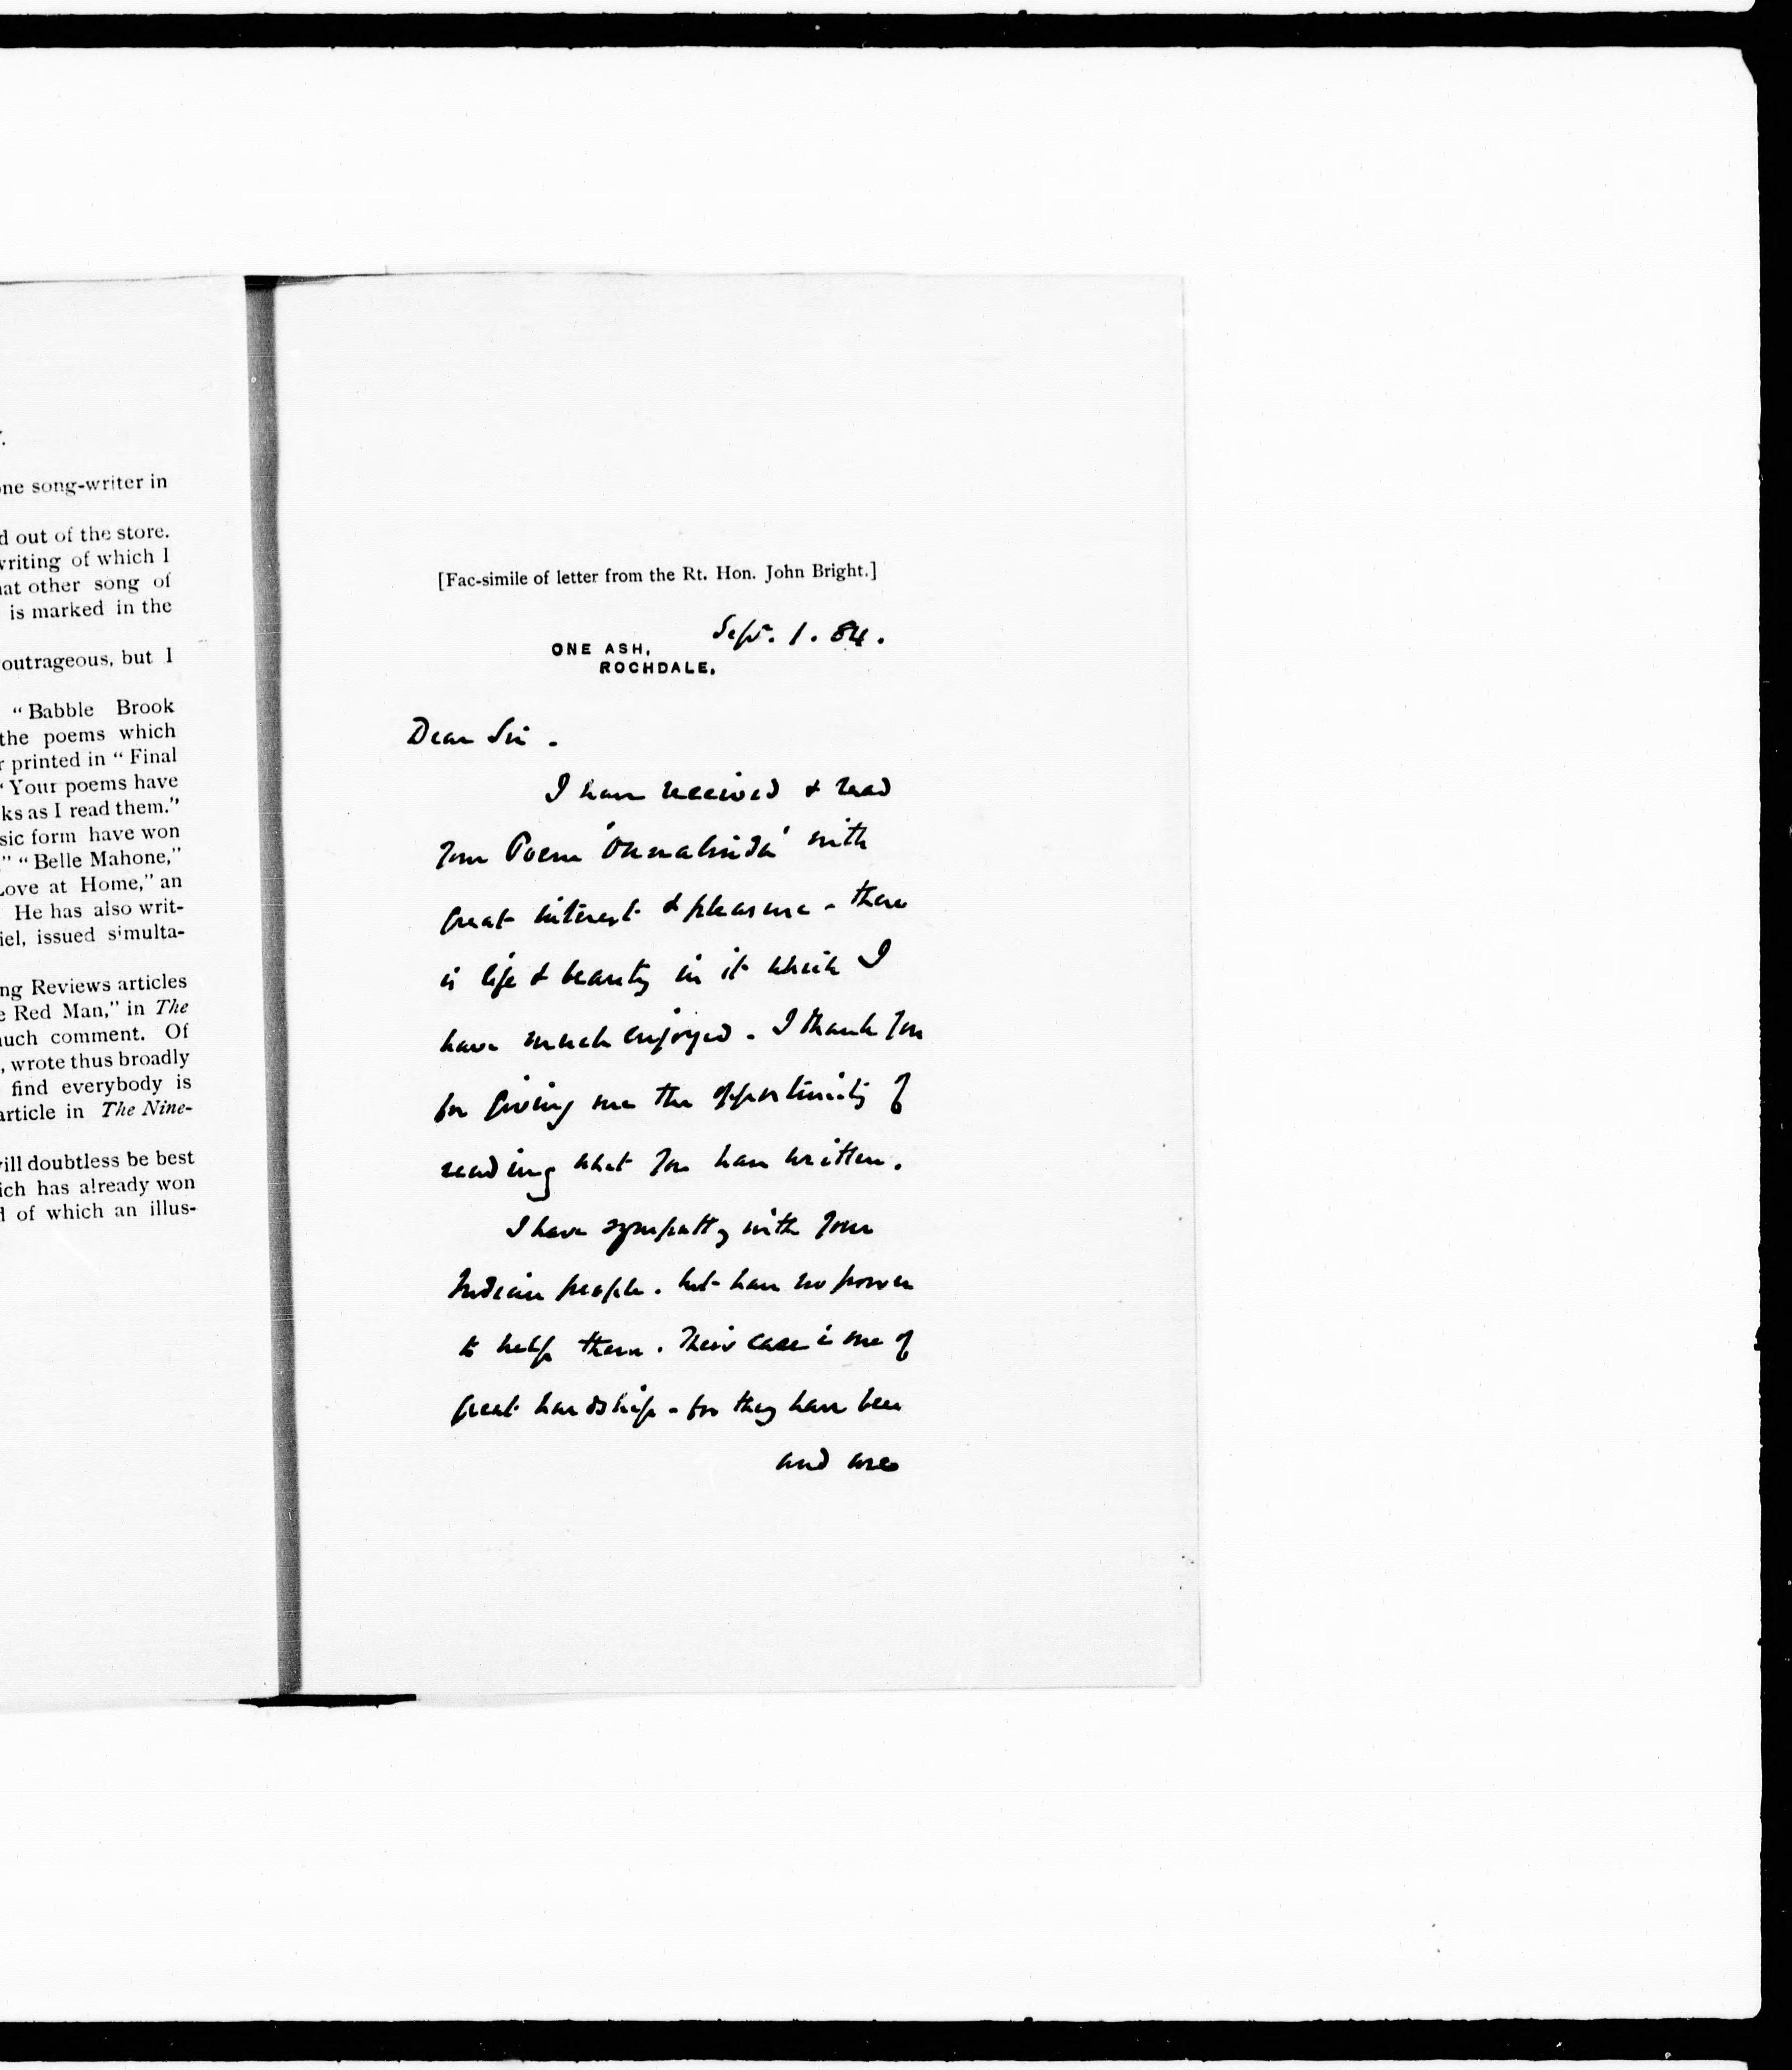 .
ne song-writer in
d out of the store.
writing of which I
hat other song of
is marked in the
outrageous, but I
“ Babble Brook
the poems which
r printed in “ Final
“ Your poems have
ks as I read them.”
sic form have won
,” “ Belle Mahone,”
Love at Home,” an
He has also writ-
iel, issued simulta-
ng Reviews articles
e Red Man,” in The
much comment. Of
, wrote thus broadly
find everybody is
article in The Nine-
will doubtless be best
ich has already won
d of which an illus-
[Fac-simile of letter from the Rt. Hon. John Bright.]
Sept. 1. 84.
ONE ASH,
ROCHDALE.
Dear Sir.
I have received & read
your Poem 'Onnalinda' with
great interest & pleasure - there
is life & beauty in it which I
have much enjoyed. I thank you
for giving me the opportunity of
reading what you have written.
I have sympathy with your
Indian people. but have no power
to help them. Their case is one of
great hardship - for they have been
and are